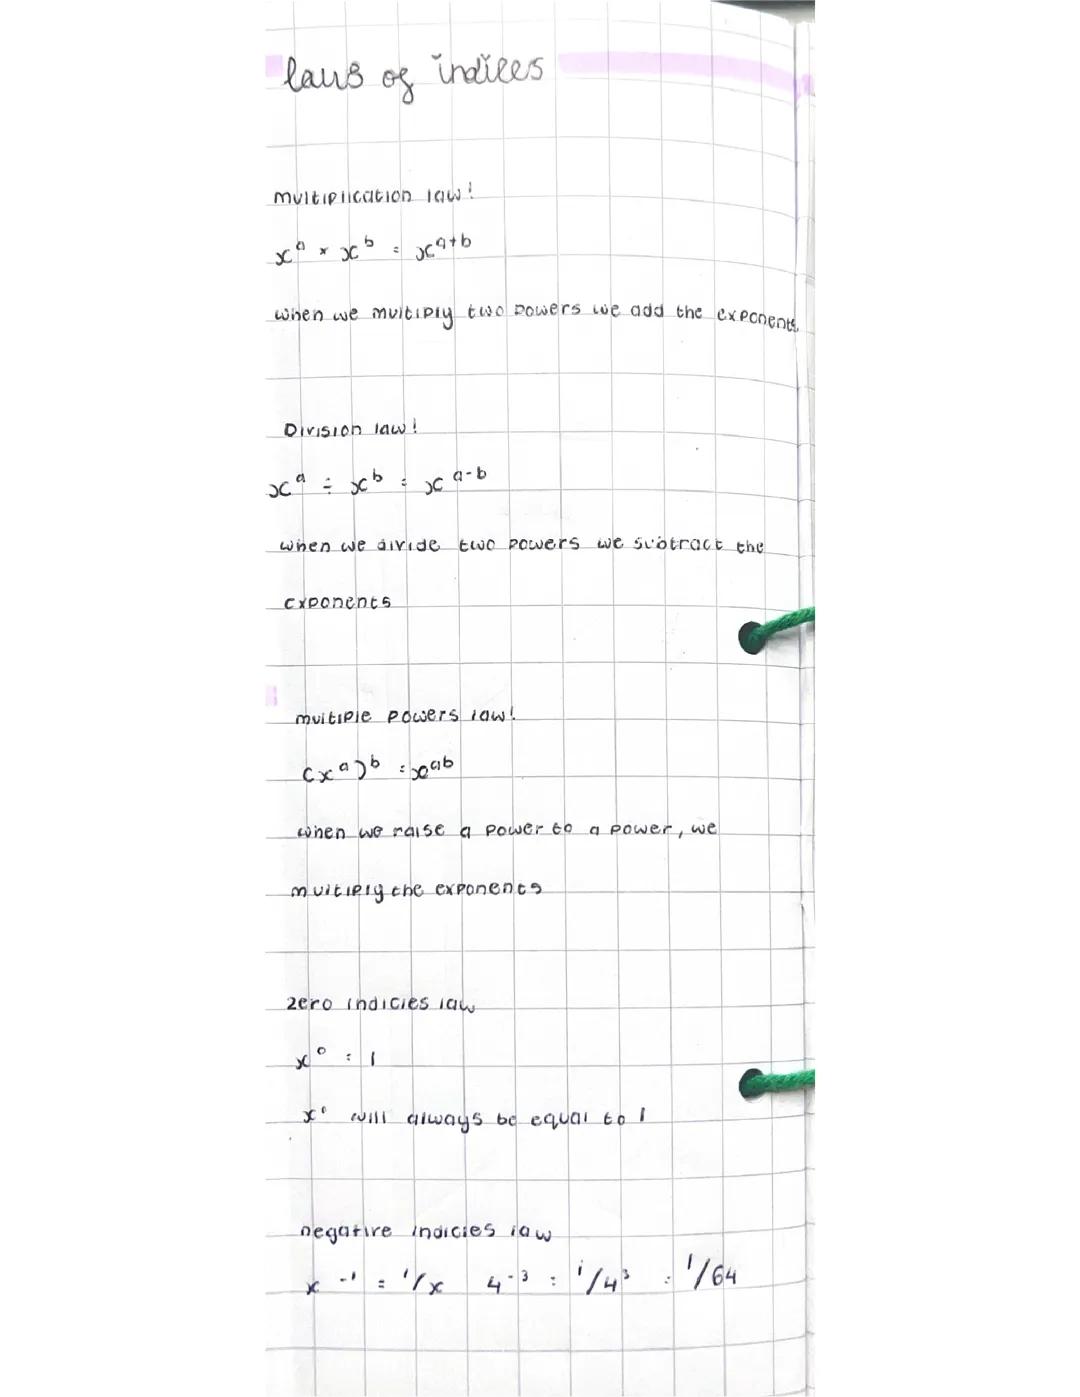 laws of indices
multiplication law!
xᵃ × xᵇ = xᵃ⁺ᵇ
when we multiply two powers we add the exponents
Division law!
xᵃ ÷ xᵇ = xᵃ⁻ᵇ
when we divide two powers we subtract the
exponents
multiple powers law!
(xᵃ)ᵇ = xᵃᵇ
when we raise a power to a power, we
multiply the exponents
zero indicies law
x⁰ = 1
x⁰ will always be equal to 1
negative indicies law
x⁻¹ = 1/x 4⁻³ = 1/4³ = 1/64